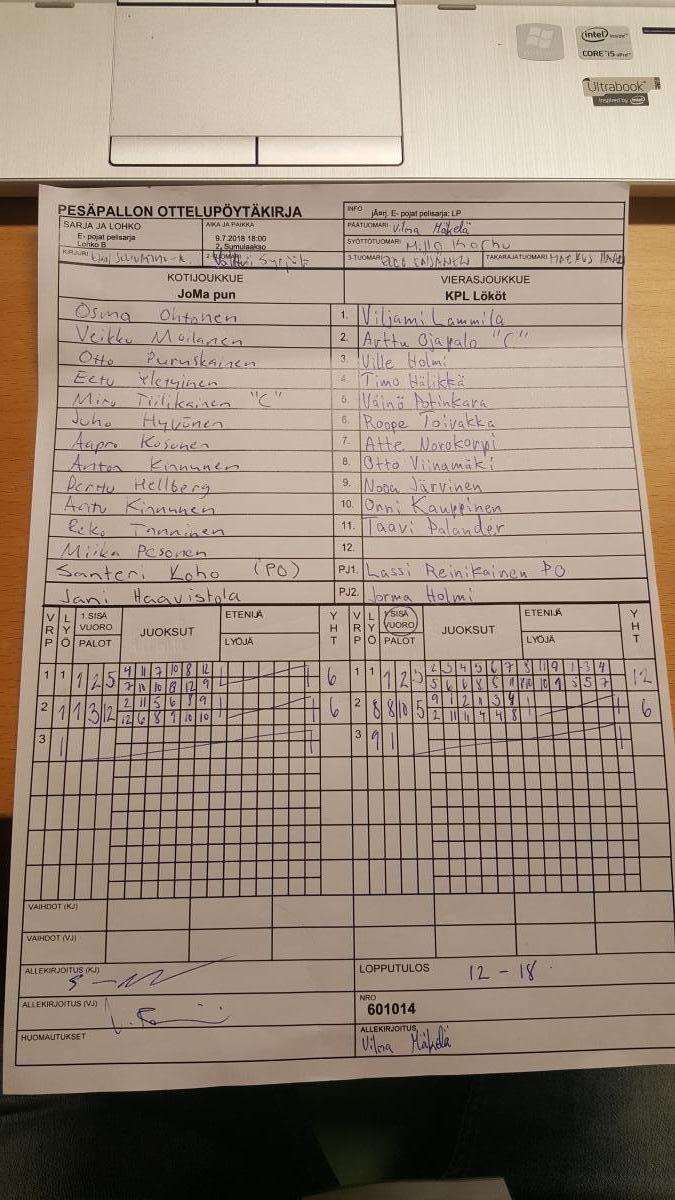 intel inside
CORE i5 vPro
Ultrabook
Inspired by intel
PESÄPALLON OTTELUPÖYTÄKIRJA
INFO jÄarj. E- pojat pelisarja: LP
SARJA JA LOHKO
E- pojat pelisarja
Lohko B
AIKA JA PAIKKA
9.7.2018 18:00
2, Sumulaakso
PÄÄTUOMARI Vilma Mäkelä
SYÖTTÖTUOMARI Milla Karhu
KIRJURI
3-TUOMARI
TAKARAJATUOMARI MARKUS
KOTIJOUKKUE
JoMa pun
VIERASJOUKKUE
KPL Lököt
Osma Ohtonen 1. Viljami Lammila
Veikko Moilanen 2. Arttu Ojapalo "C"
Otto Puruskainen 3. Ville Holmi
Eetu Yletyinen 4. Timo Hälikkä
Miro Tiilikainen "C" 5. Väinö Potinkara
Juho Hyvönen 6. Roope Toivakka
Aapro Kosonen 7. Atte Norokorpi
Anton Kinnunen 8. Otto Viinamäki
Perttu Hellberg 9. Nooa Järvinen
Aatu Kinnunen 10. Onni Kauppinen
Riko Tanninen 11. Taavi Palander
Miika Pesonen 12.
Santeri Koho (PO) PJ1. Lassi Reinikainen PO
Jani Haavistola PJ2. Jorma Holmi
VRP LYÖ 1.SISÄ VUORO PALOT JUOKSUT ETENIJÄ LYÖJÄ YHT VRP LYÖ 1.SISÄ VUORO PALOT JUOKSUT ETENIJÄ LYÖJÄ YHT
1 1 1 2 5 4 11 7 10 8 12 6 1 1 1 2 5 2 3 4 5 6 7 8 11 9 1 3 4 12
7 10 10 8 12 9 5 6 6 8 5 9 8 10 10 9 5 5 7
2 1 1 3 12 2 11 5 6 8 9 6 2 8 8 10 5 9 1 2 1 3 9 6
12 6 8 9 10 10 2 11 11 4 4 8
3 1 3 9 1
VAIHDOT (KJ)
VAIHDOT (VJ)
ALLEKIRJOITUS (KJ)
LOPPUTULOS 12 - 18
ALLEKIRJOITUS (VJ)
NRO
601014
HUOMAUTUKSET
ALLEKIRJOITUS
Vilma Mäkelä